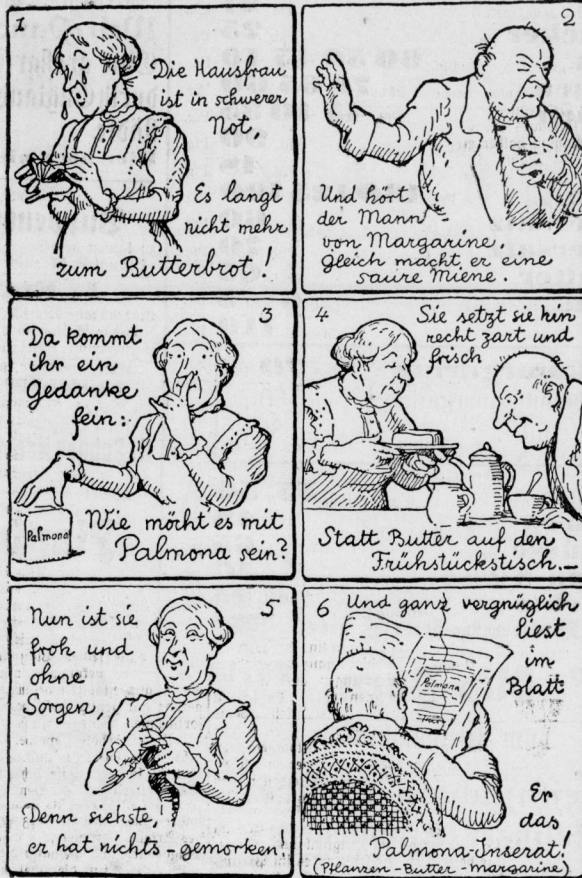 1
Die Hausfrau
ist in schwerer
Not,
Es langt
nicht mehr
zum Butterbrot!
2
Und hört
der Mann
von Margarine,
Gleich macht er eine
saure Miene.
3
Da kommt
ihr ein
Gedanke
fein:
Palmona
Wie möcht es mit
Palmona sein?
4
Sie setzt sie hin
recht zart und
frisch
Statt Butter auf den
Frühstückstisch.—
5
Nun ist sie
froh und
ohne
Sorgen,
Denn siehste,
er hat nichts - gemorken!
6
Und ganz vergnüglich
liest
im
Blatt
Palmona
Er
das
Palmona-Inserat!
(Pflanzen-Butter-Margarine)